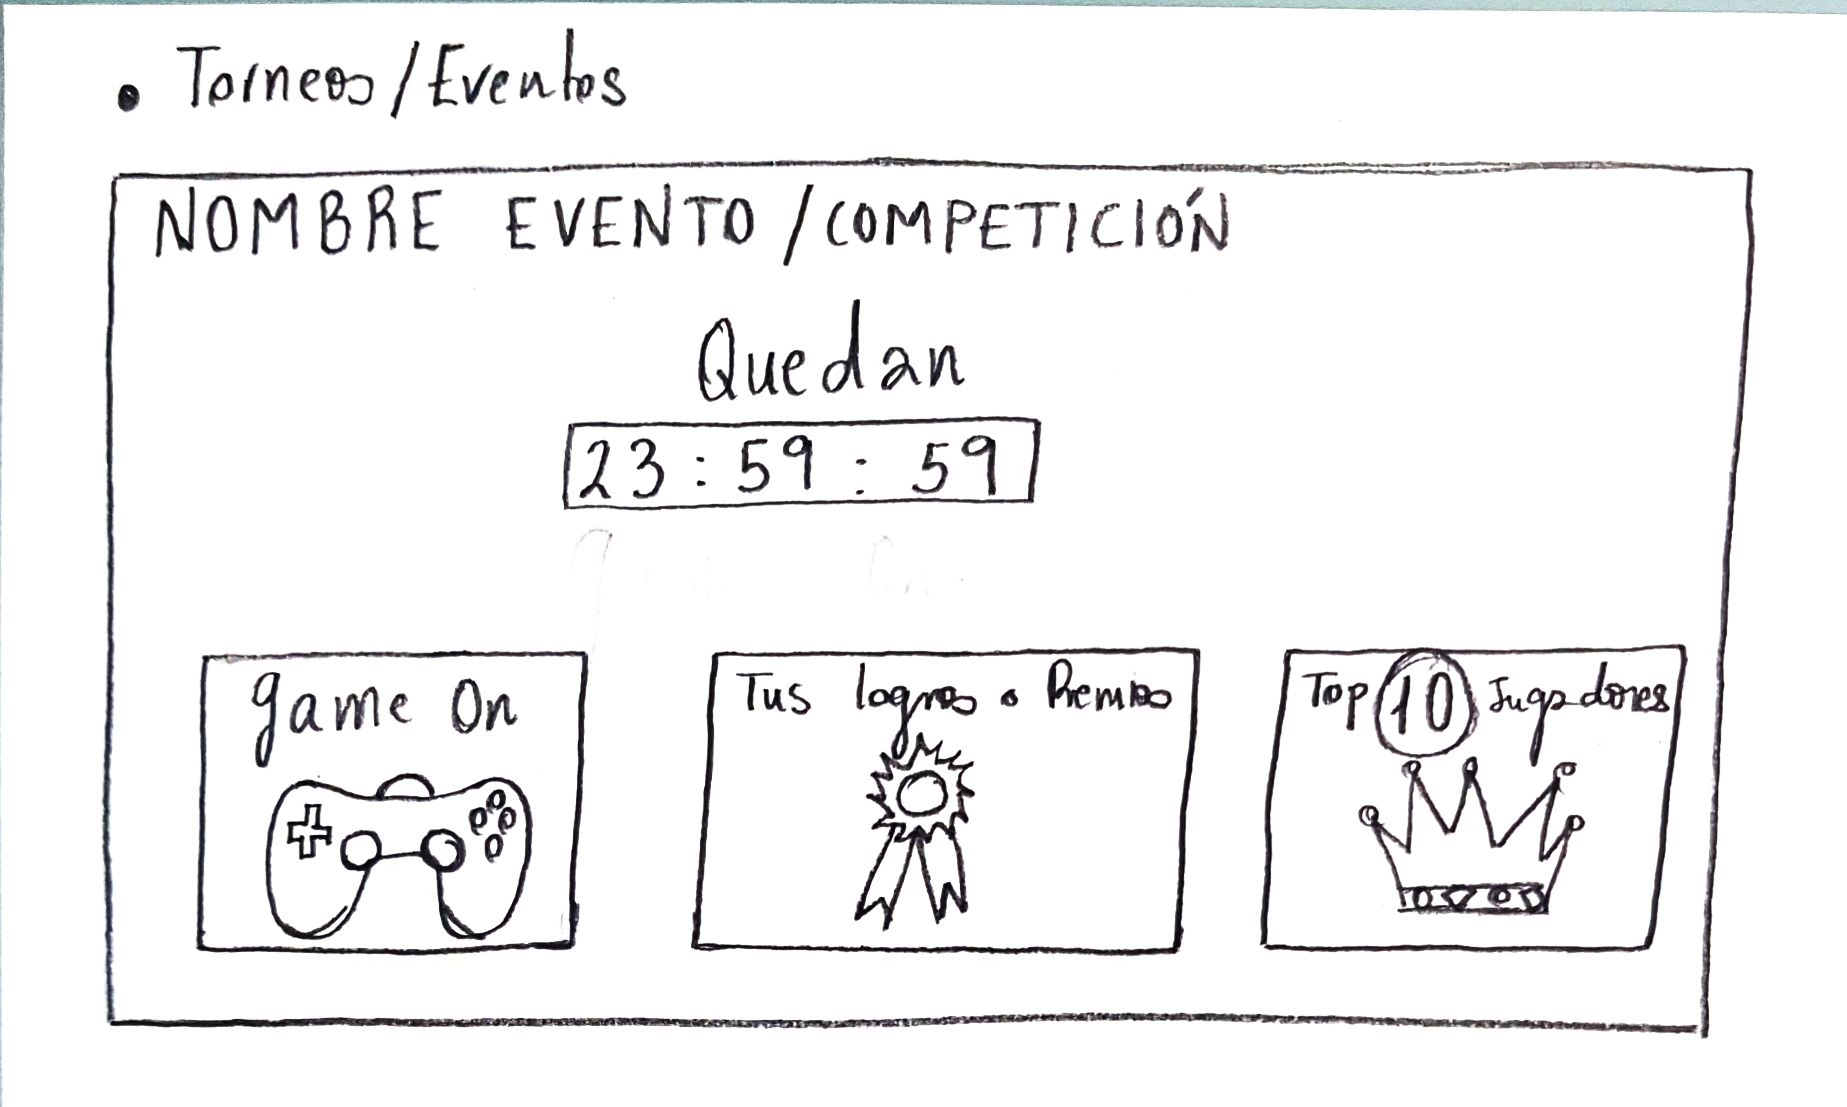 • Torneos/Eventos
NOMBRE EVENTO/COMPETICIÓN
Quedan
23:59:59
game On
Tus logros o Premios
Top 10 Jugadores